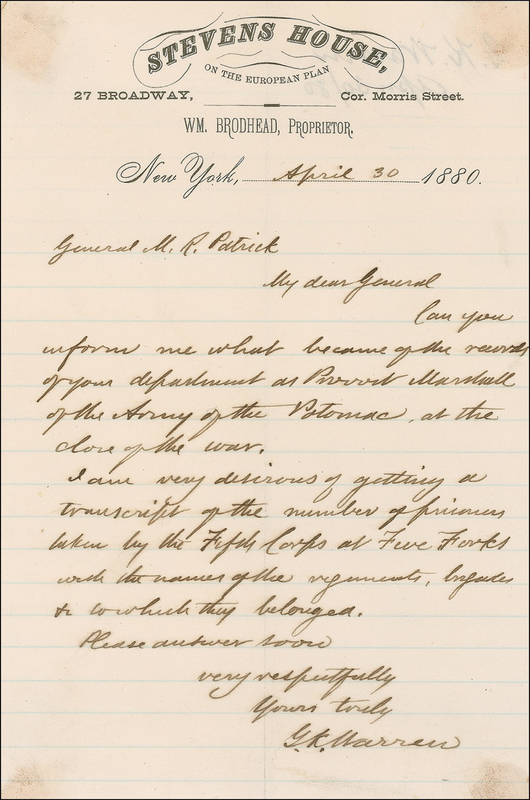 STEVENS HOUSE,
ON THE EUROPEAN PLAN
27 BROADWAY, Cor. Morris Street.
WM. BRODHEAD, PROPRIETOR.
New York, April 30 1880.
General M. R. Patrick
My dear General
Can you
inform me what became of the records
of your department as Provost Marshall
of the Army of the Potomac, at the
close of the war.
I am very desirous of getting a
transcript of the number of prisoners
taken by the Fifth Corps at Five Forks
with the names of the regiments, brigades
& to which they belonged.
Please answer soon
very respectfully
Yours truly
G. K. Warren